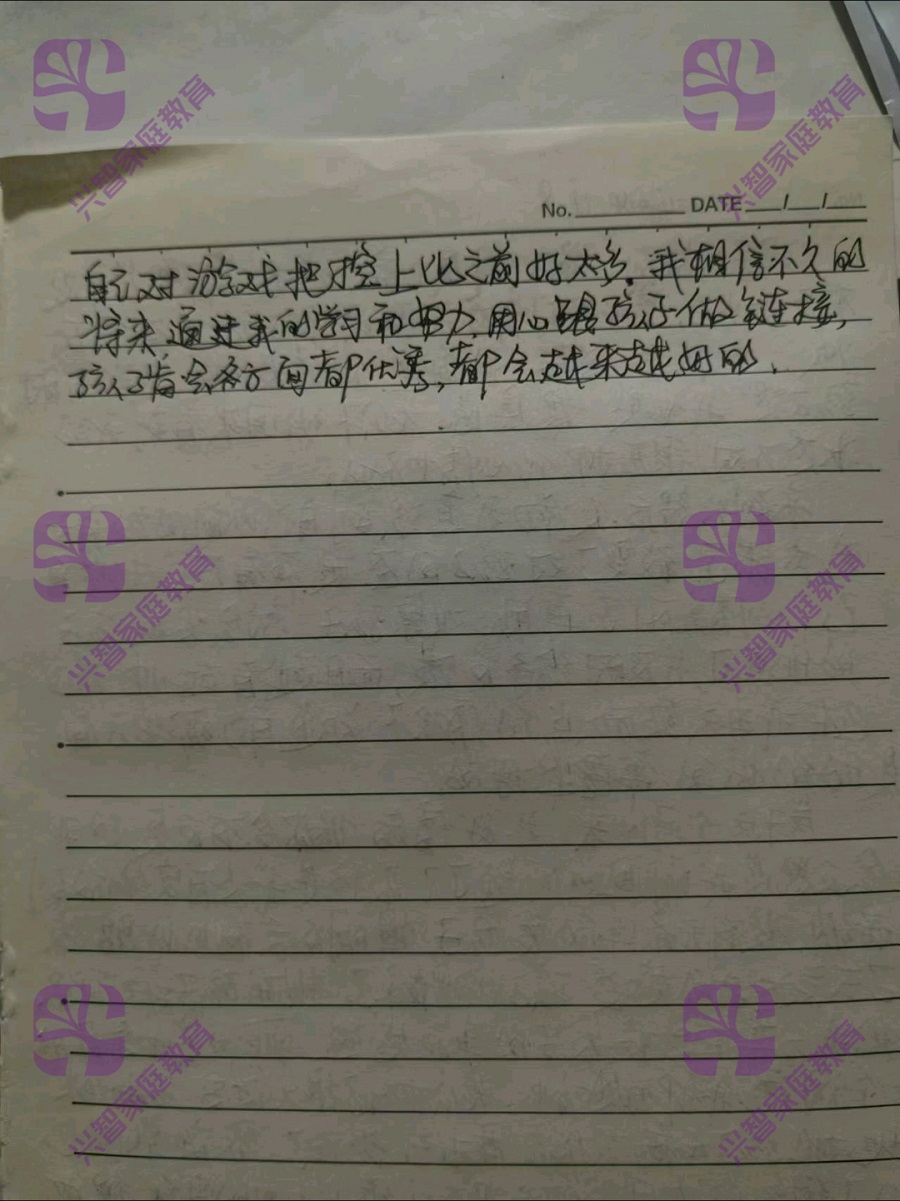 兴智家庭教育
兴智家庭教育
No. DATE / /
自己对游戏把控上比之前好太多。我相信不久的
将来,通过我的学习和努力,用心跟孩子做链接,
孩子肯会各方面都优秀,都会越来越好的.
兴智家庭教育
兴智家庭教育
兴智家庭教育
兴智家庭教育